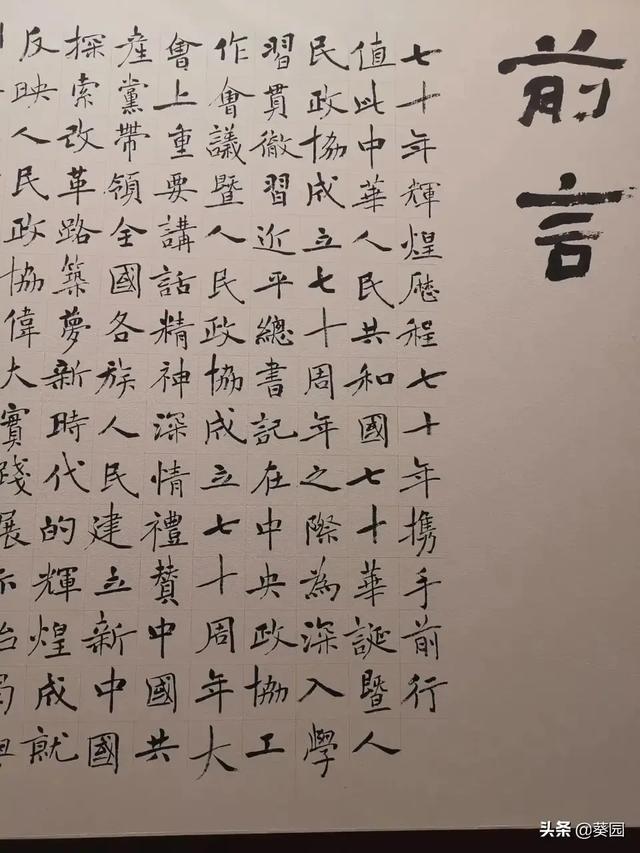 前言
七十年輝煌歷程七十年携手前行
值此中華人民共和國七十華誕暨人
民政協成立七十周年之際為深入學
習貫徹習近平總書記在中央政協工
作會議暨人民政協成立七十周年大
會上重要講話精神深情禮贊中國共
產黨帶領全國各族人民建立新中國
探索改革路築夢新時代的輝煌成就
反映人民政協偉大實踐展
头条 @葵园